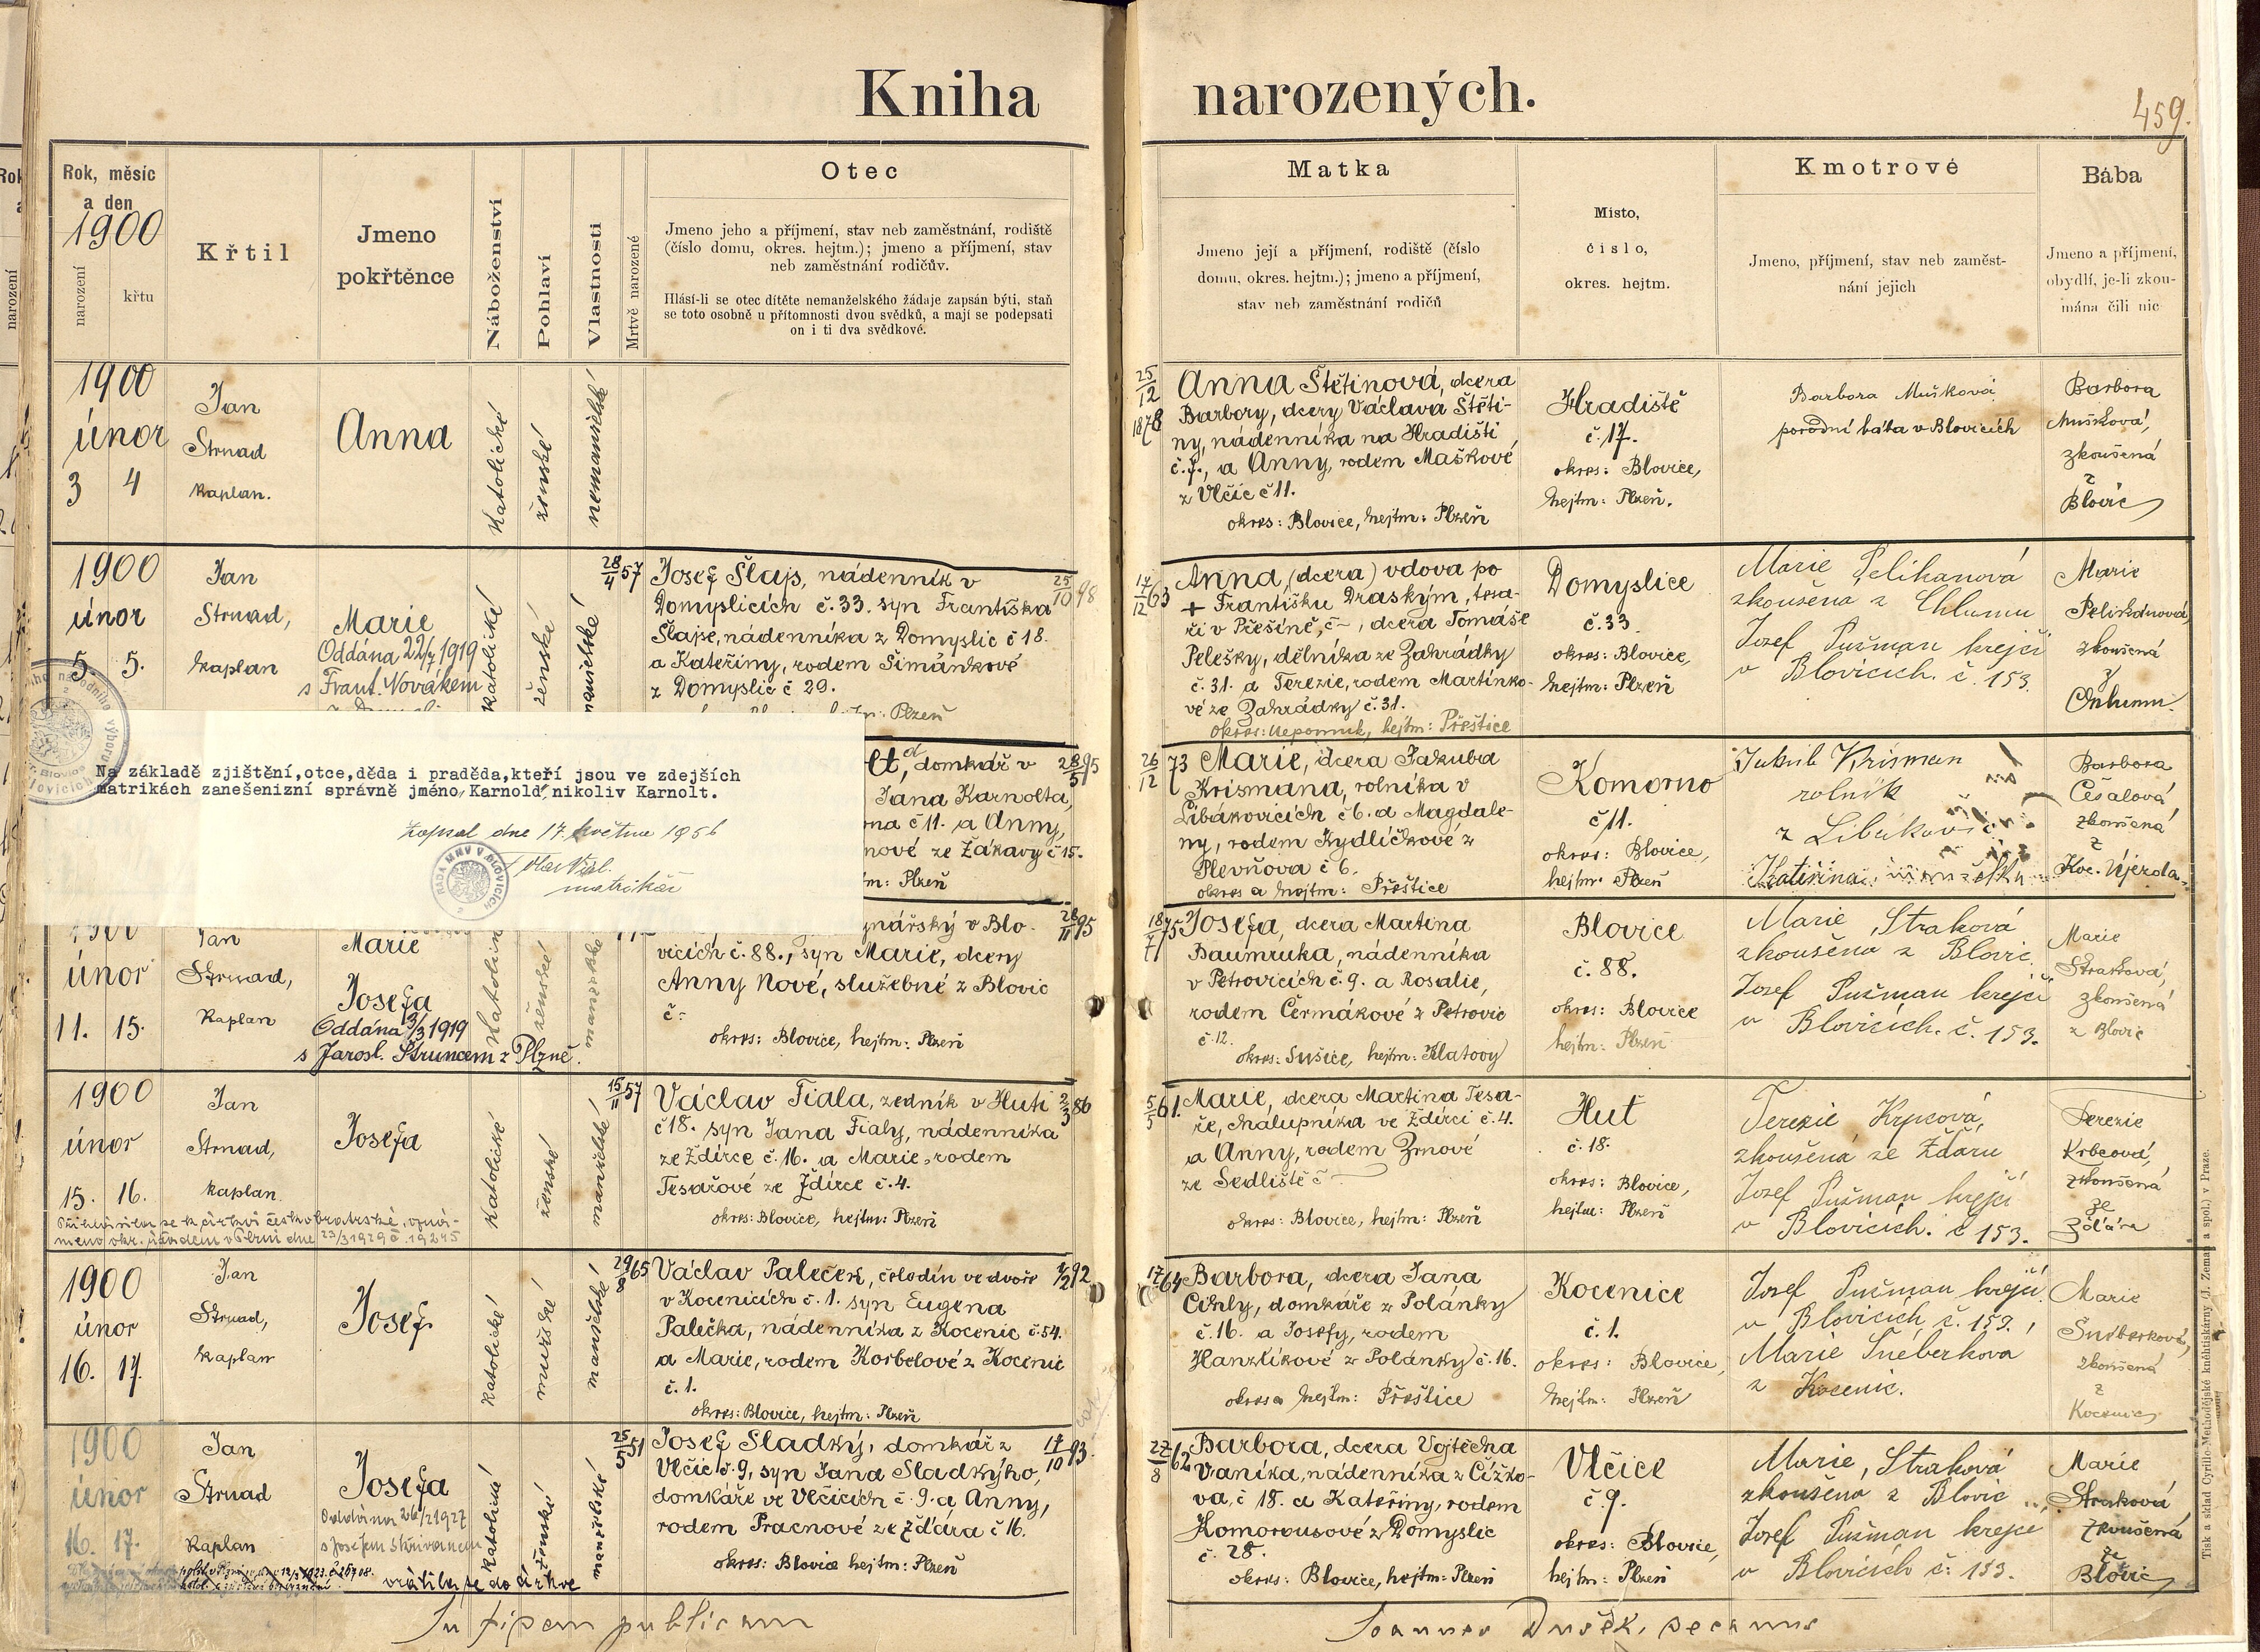 Kniha narozených.
459.
Rok, měsíc
a den
1900
narození
křtu
Křtil
Jmeno
pokřtěnce
Náboženství
Pohlaví
Vlastnosti
Mrtvě narozené
Otec
Jmeno jeho a příjmení, stav neb zaměstnání, rodiště
(číslo domu, okres. hejtm.); jmeno a příjmení, stav
neb zaměstnání rodičův.
Hlásí-li se otec dítěte nemanželského žádaje zapsán býti, staň
se toto osobně u přítomnosti dvou svědků, a mají se podepsati
on i ti dva svědkové.
Matka
Jmeno její a příjmení, rodiště (číslo
domu, okres. hejtm.); jmeno a příjmení,
stav neb zaměstnání rodičů
Místo,
číslo,
okres. hejtm.
Kmotrové
Jmeno, příjmení, stav neb zaměst-
nání jejich
Bába
Jmeno a příjmení,
obydlí, je-li zkou-
mána čili nic
1900
únor
3 4
Jan
Strnad
kaplan.
Anna
katolické
ženské
nemanželské
25/12 1878
Anna Štětinová, dcera
Barbory, dcery Václava Štěti-
ny, nádenníka na Hradišti
č.7., a Anny, rodem Maškové
z Vlčic č 11.
okres: Blovice, hejtm: Plzeň
Hradiště
č. 17.
okres: Blovice,
hejtm: Plzeň.
Barbora Mušková
porodní bába v Blovicích
Barbora
Mušková,
zkoušená
z
Blovic
1900
únor
5. 5.
Jan
Strnad,
kaplan
Marie
Oddána 22/7 1919
s Frant. Novákem
katolické
ženské
manželské
28/4 57
Josef Šlajs, nádenník v
Domyslicích č. 33. syn Františka
Šlajse, nádenníka z Domyslic č 18.
a Kateřiny, rodem Šimánkové
z Domyslic č 29.
Plzeň
25/10 98
17/12 63
Anna, (dcera) vdova po
+ Františku Draským, tesa-
ři v Přešíně, č–, dcera Tomáše
Pelešky, dělníka ze Zahrádky
č. 31. a Terezie, rodem Martínko-
vé ze Zahrádky č. 31.
okres: Nepomuk, hejtm: Přeštice
Domyslice
č. 33.
okres: Blovice,
hejtm: Plzeň
Marie Pelikanová
zkoušena z Chlumu
Josef Pužman krejčí
v Blovicích. č. 153.
Marie
Pelikánová
zkoušená
z
Chlumu.
Na základě zjištění,otce,děda i praděda,kteří jsou ve zdejších
matrikách zanešenizní správně jméno,Karnold,nikoliv Karnolt.
Zapsal dne 17. května 1956
matrikář
RADA MNV V BLOVICÍCH
lt, d domkář v
Jana Karnolta,
rna č 11. a Anny,
nové ze Žákavy č 15.
m: Plzeň
28/5 95
26/12 73
Marie, dcera Jakuba
Krismana, rolníka v
Libákovicích č 6. a Magdale-
ny, rodem Kydlíčkové z
Plevňova č 6.
okres a hejtm: Přeštice
Komorno
č 11.
okres: Blovice,
hejtm: Plzeň
Jakub Krisman
rolník
z Libákovic
Kateřina, manželka
Barbora
Češalová,
zkoušená
z
Koc. Újezda
1900
únor
11. 15.
Jan
Strnad,
kaplan
Marie
Josefa
Oddána 3/3 1919
s Jarosl. Štruncem z Plzně.
ženské
manželské
ynářský v Blo-
vicích č. 88., syn Marie, dcery
Anny Nové, služebné z Blovic
č–
okres: Blovice, hejtm: Plzeň
28/11 95
18/7 75
Josefa, dcera Martina
Baumruka, nádenníka
v Petrovicích č. 9. a Rosalie,
rodem Čermákové z Petrovic
č 12.
okres: Sušice, hejtm: Klatovy
Blovice
č. 88.
okres: Blovice
hejtm: Plzeň
Marie Straková
zkoušena z Blovic.
Josef Pužman krejčí
v Blovicích. č. 153.
Marie
Straková,
zkoušená
z Blovic
1900
únor
15. 16.
Jan
Strnad,
kaplan.
Josefa
katolické
ženské
manželské
15/11 57
Václav Fiala, zedník v Huti
č 18. syn Jana Fialy, nádenníka
ze Ždírce č. 16. a Marie, rodem
Tesařové ze Ždírce č. 4.
okres: Blovice, hejtm: Plzeň
2/3 86
5/5 61.
Marie, dcera Martina Tesa-
ře, chalupníka ve Ždírci č. 4.
a Anny, rodem Zrnové
ze Sedliště č –
okres: Blovice, hejtm: Plzeň
Huť
č. 18.
okres: Blovice,
hejtm: Plzeň
Terezie Krpcová,
zkoušená ze Žďáru
Josef Pužman krejčí
v Blovicích. č 153.
Terezie
Krbcová,
zkoušená
ze
Žďára
1900
únor
16. 17.
Jan
Strnad,
kaplan
Josef
katolické
mužské
manželské
29/8 65
Václav Paleček, čeledín ve dvoře
v Kocenicích č. 1. syn Eugena
Palečka, nádenníka z Kocenic č. 54.
a Marie, rodem Korbelové z Kocenic
č. 1.
okres: Blovice, hejtm: Plzeň
17/ 64
Barbora, dcera Jana
Cihly, domkáře z Polánky
č. 16. a Josefy, rodem
Hanzlíkové z Polánky č. 16.
okres a hejtm: Přeštice
Kocenice
č. 1.
okres: Blovice,
hejtm: Plzeň
Josef Pužman krejčí
v Blovicích č. 153.
Marie Šneberkova
z Kocenic.
Marie
Šnéberková,
zkoušená
z
Kocenic
1900
únor
16. 17.
Jan
Strnad
Kaplan
Josefa
Oddána 26/2 1927
s Josefem Skřivanem
vrátila se do církve
katolické
ženské
manželské
25/5 51
Josef Sladký, domkář z
Vlčic č. 9, syn Jana Sladkýho,
domkáře ve Vlčicích č. 9. a Anny,
rodem Pracnové ze Žďára č 16.
okres: Blovice hejtm: Plzeň
17/10 93.
27/8 62
Barbora, dcera Vojtěcha
Vaníka, nádenníka z Čížko-
va, č 18. a Kateřiny, rodem
Komorousové z Domyslic
č. 28.
okres: Blovice, hejtm: Plzeň
Vlčice
č. 9.
okres: Blovice,
hejtm: Plzeň
Marie, Straková
zkoušena z Blovic
Josef Pužman krejčí
v Blovicích č. 153.
Marie
Straková
zkoušená
ze
Blovic
In fidem publicam
Joannes Dušek, decanus
Tisk a sklad Cyrillo-Methodějské knihtiskárny (J. Zeman a spol.) v Praze.